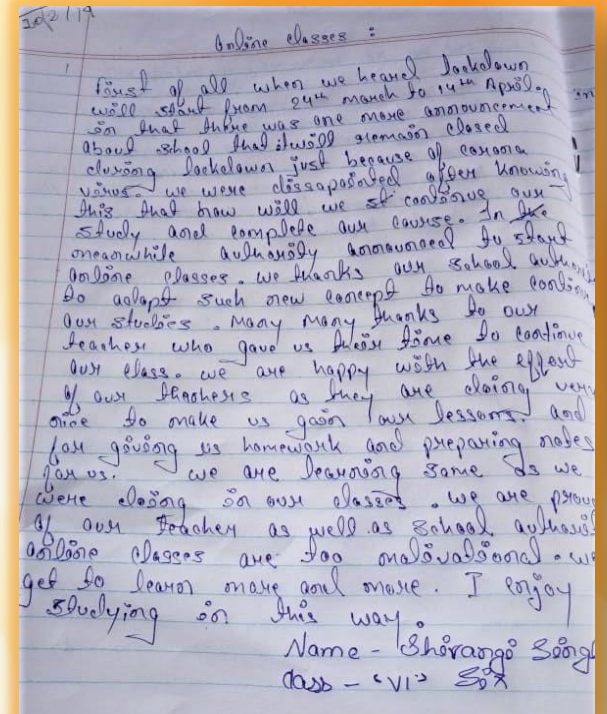 Online classes :
First of all when we heard lockdown
will start from 24th march to 14th April.
in that there was one more announcement
about school that it will remain closed
during lockdown just because of corona
virus. we were dissapointed after knowing
this that how will we st continue our
study and complete our course. In the
meanwhile authority announced to start
online classes. we thanks our school
to adapt such new concept to make
our studies. Many Many thanks to our
teacher who gave us their time to continue
our class. we are happy with the effort
of our theachers as they are doing very
nice to make us gain our lessons. and
for giving us homework and preparing notes
for us. we are learning same as we
were doing in our classes. we are
of our teacher as well as school
online classes are too motivational. we
get to learn more and more. I enjoy
studying in this way.
Name - Shivangi
Class - "VI" Six